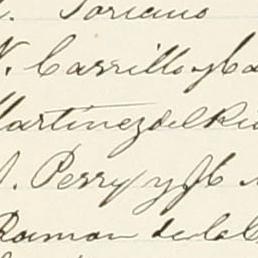 Soriano
Carrillo y Ca
Martinez del Rio
J. Perry y H
Ramon de la C